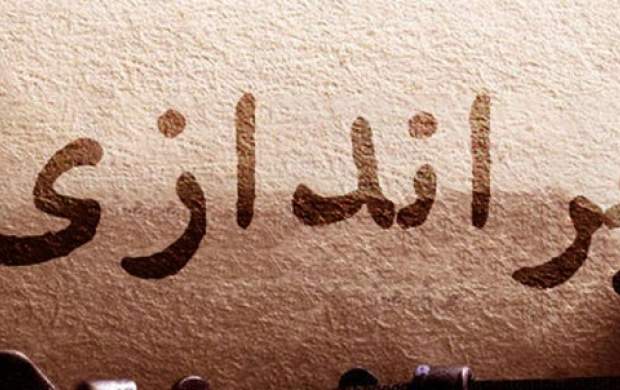 اندازی